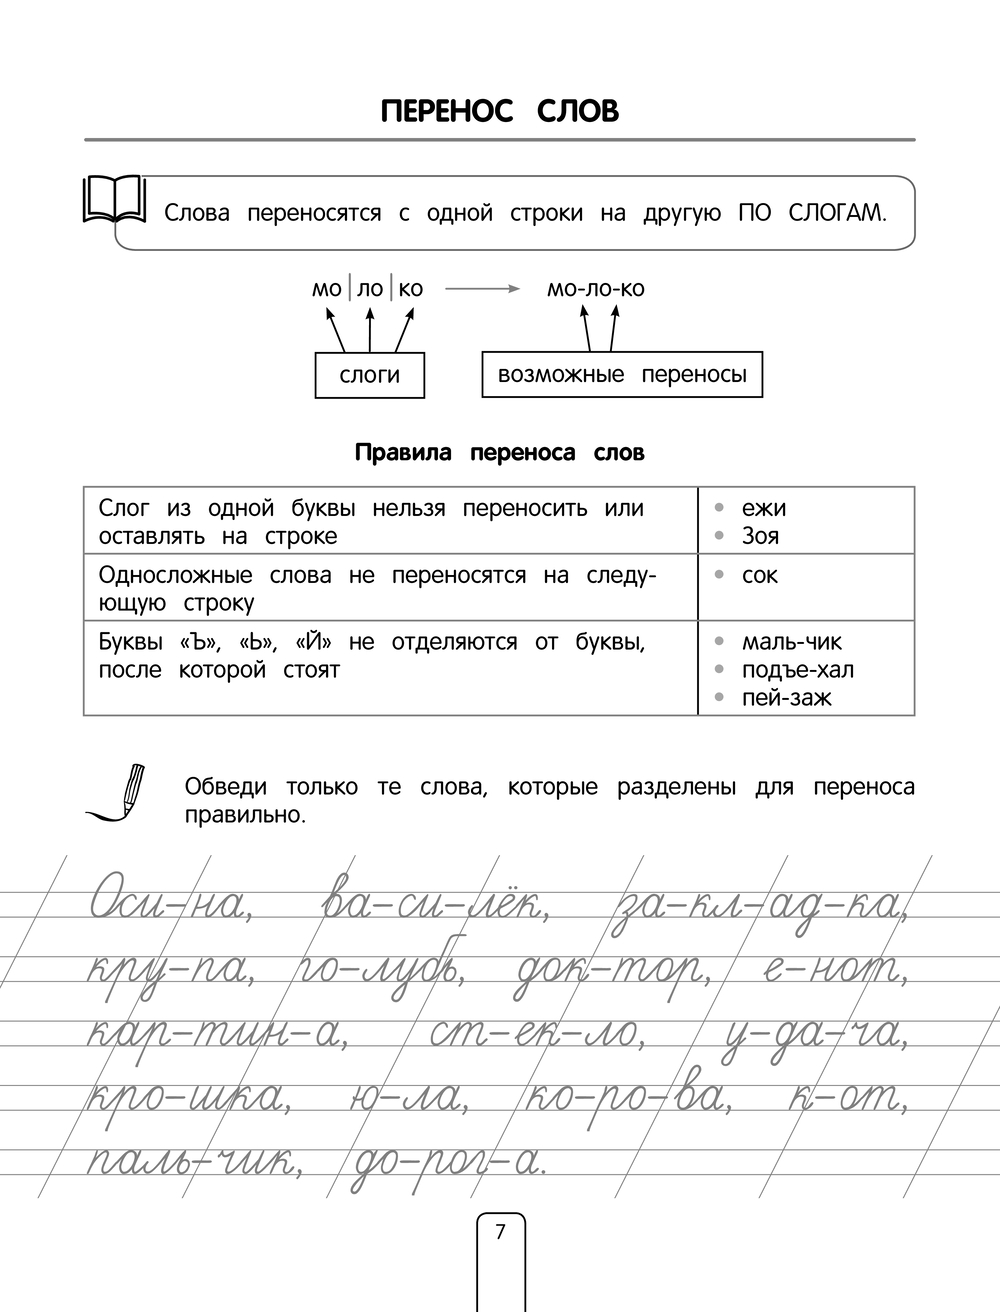 ПЕРЕНОС СЛОВ
Слова переносятся с одной строки на другую ПО СЛОГАМ.
мо|ло|ко мо-ло-ко
слоги возможные переносы
Правила переноса слов
Слог из одной буквы нельзя переносить или
оставлять на строке
• ежи
• Зоя
Односложные слова не переносятся на следу-
ющую строку
• сок
Буквы «Ъ», «Ь», «Й» не отделяются от буквы,
после которой стоят
• маль-чик
• подъе-хал
• пей-заж
Обведи только те слова, которые разделены для переноса
правильно.
Оси-на, ва-си-лёк, за-кл-ад-ка,
кру-па, го-лубь, док-тор, е-нот,
кар-тин-а, ст-ек-ло, у-да-ча,
кро-шка, ю-ла, ко-ро-ва, к-от,
паль-чик, до-рог-а.
7